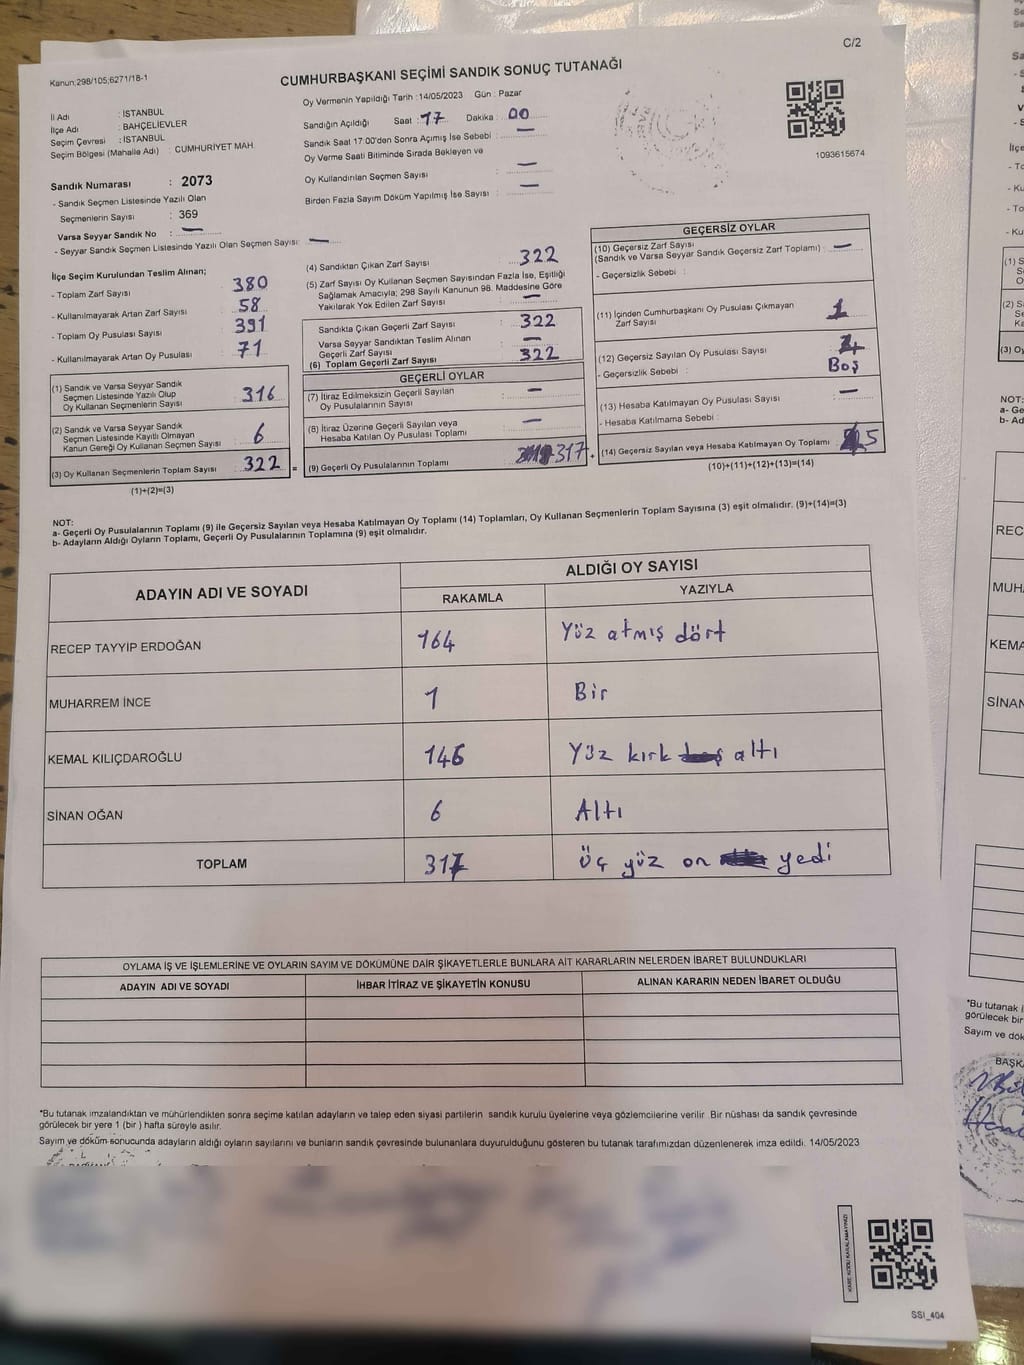 C/2
Kanun:298/105;6271/18-1
CUMHURBAŞKANI SEÇİMİ SANDIK SONUÇ TUTANAĞI
İl Adı : İSTANBUL
İlçe Adı : BAHÇELİEVLER
Seçim Çevresi : İSTANBUL
Seçim Bölgesi (Mahalle Adı) : CUMHURİYET MAH.
Sandık Numarası : 2073
- Sandık Seçmen Listesinde Yazılı Olan
Seçmenlerin Sayısı : 369
Varsa Seyyar Sandık No : —
- Seyyar Sandık Seçmen Listesinde Yazılı Olan Seçmen Sayısı : —
Oy Vermenin Yapıldığı Tarih : 14/05/2023 Gün : Pazar
Sandığın Açıldığı Saat : 17 Dakika : 00
Sandık Saat 17:00'den Sonra Açımış İse Sebebi : —
Oy Verme Saati Bitiminde Sırada Bekleyen ve
Oy Kullandırılan Seçmen Sayısı : —
Birden Fazla Sayım Döküm Yapılmış İse Sayısı : —
1093615674
İlçe Seçim Kurulundan Teslim Alınan;
- Toplam Zarf Sayısı : 380
- Kullanılmayarak Artan Zarf Sayısı : 58
- Toplam Oy Pusulası Sayısı : 391
- Kullanılmayarak Artan Oy Pusulası : 71
(1) Sandık ve Varsa Seyyar Sandık
Seçmen Listesinde Yazılı Olup
Oy Kullanan Seçmenlerin Sayısı : 316
(2) Sandık ve Varsa Seyyar Sandık
Seçmen Listesinde Kayıtlı Olmayan
Kanun Gereği Oy Kullanan Seçmen Sayısı : 6
(3) Oy Kullanan Seçmenlerin Toplam Sayısı : 322 =
(1)+(2)=(3)
(4) Sandıktan Çıkan Zarf Sayısı : 322
(5) Zarf Sayısı Oy Kullanan Seçmen Sayısından Fazla İse, Eşitliği
Sağlamak Amacıyla; 298 Sayılı Kanunun 98. Maddesine Göre
Yakılarak Yok Edilen Zarf Sayısı : —
Sandıkta Çıkan Geçerli Zarf Sayısı : 322
Varsa Seyyar Sandıktan Teslim Alınan
Geçerli Zarf Sayısı : —
(6) Toplam Geçerli Zarf Sayısı : 322
GEÇERLİ OYLAR
(7) İtiraz Edilmeksizin Geçerli Sayılan
Oy Pusulalarının Sayısı : —
(8) İtiraz Üzerine Geçerli Sayılan veya
Hesaba Katılan Oy Pusulası Toplamı : —
(9) Geçerli Oy Pusulalarının Toplamı : 317 +
GEÇERSİZ OYLAR
(10) Geçersiz Zarf Sayısı
(Sandık ve Varsa Seyyar Sandık Geçersiz Zarf Toplamı) : —
- Geçersizlik Sebebi :
(11) İçinden Cumhurbaşkanı Oy Pusulası Çıkmayan
Zarf Sayısı : 1
(12) Geçersiz Sayılan Oy Pusulası Sayısı :
- Geçersizlik Sebebi : Boş
(13) Hesaba Katılmayan Oy Pusulası Sayısı : —
- Hesaba Katılmama Sebebi :
(14) Geçersiz Sayılan veya Hesaba Katılmayan Oy Toplamı : 5
(10)+(11)+(12)+(13)=(14)
NOT:
a- Geçerli Oy Pusulalarının Toplamı (9) ile Geçersiz Sayılan veya Hesaba Katılmayan Oy Toplamı (14) Toplamları, Oy Kullanan Seçmenlerin Toplam Sayısına (3) eşit olmalıdır. (9)+(14)=(3)
b- Adayların Aldığı Oyların Toplamı, Geçerli Oy Pusulalarının Toplamına (9) eşit olmalıdır.
ADAYIN ADI VE SOYADI ALDIĞI OY SAYISI
RAKAMLA YAZIYLA
RECEP TAYYİP ERDOĞAN 164 Yüz atmış dört
MUHARREM İNCE 1 Bir
KEMAL KILIÇDAROĞLU 146 Yüz kırk altı
SİNAN OĞAN 6 Altı
TOPLAM 317 Üç yüz on yedi
OYLAMA İŞ VE İŞLEMLERİNE VE OYLARIN SAYIM VE DÖKÜMÜNE DAİR ŞİKAYETLERLE BUNLARA AİT KARARLARIN NELERDEN İBARET BULUNDUKLARI
ADAYIN ADI VE SOYADI İHBAR İTİRAZ VE ŞİKAYETİN KONUSU ALINAN KARARIN NEDEN İBARET OLDUĞU
*Bu tutanak imzalandıktan ve mühürlendikten sonra seçime katılan adayların ve talep eden siyasi partilerin sandık kurulu üyelerine veya gözlemcilerine verilir. Bir nüshası da sandık çevresinde
görülecek bir yere 1 (bir) hafta süreyle asılır.
Sayım ve döküm sonucunda adayların aldığı oyların sayılarını ve bunların sandık çevresinde bulunanlara duyurulduğunu gösteren bu tutanak tarafımızdan düzenlenerek imza edildi. 14/05/2023
KARE KODU KARALAMAYINIZ!
SSI_404